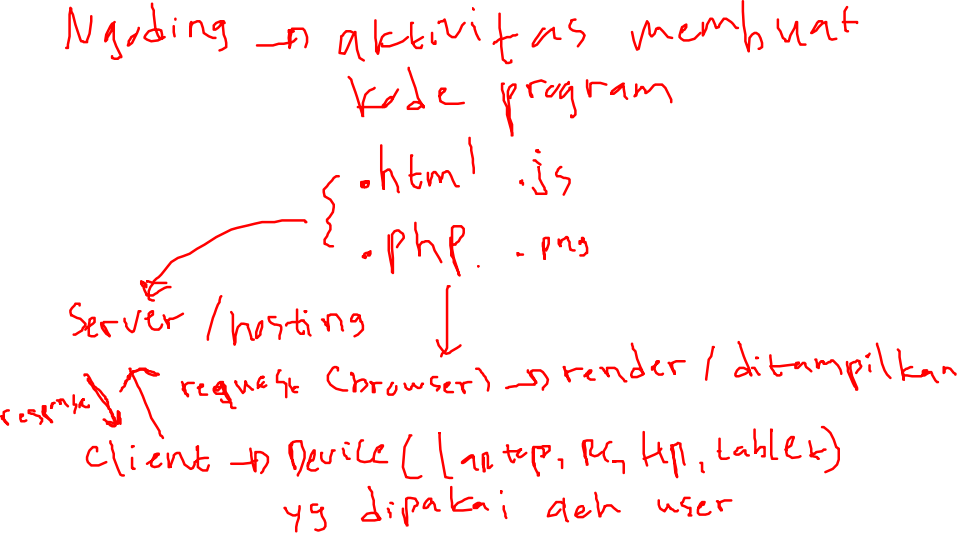 Ngoding → aktivitas membuat
kode program
.html .js
.php. .png
Server / hosting
request (browser) → render / ditampilkan
response
Client → Device (Laptop, PC, HP, tablet)
yg dipakai oleh user